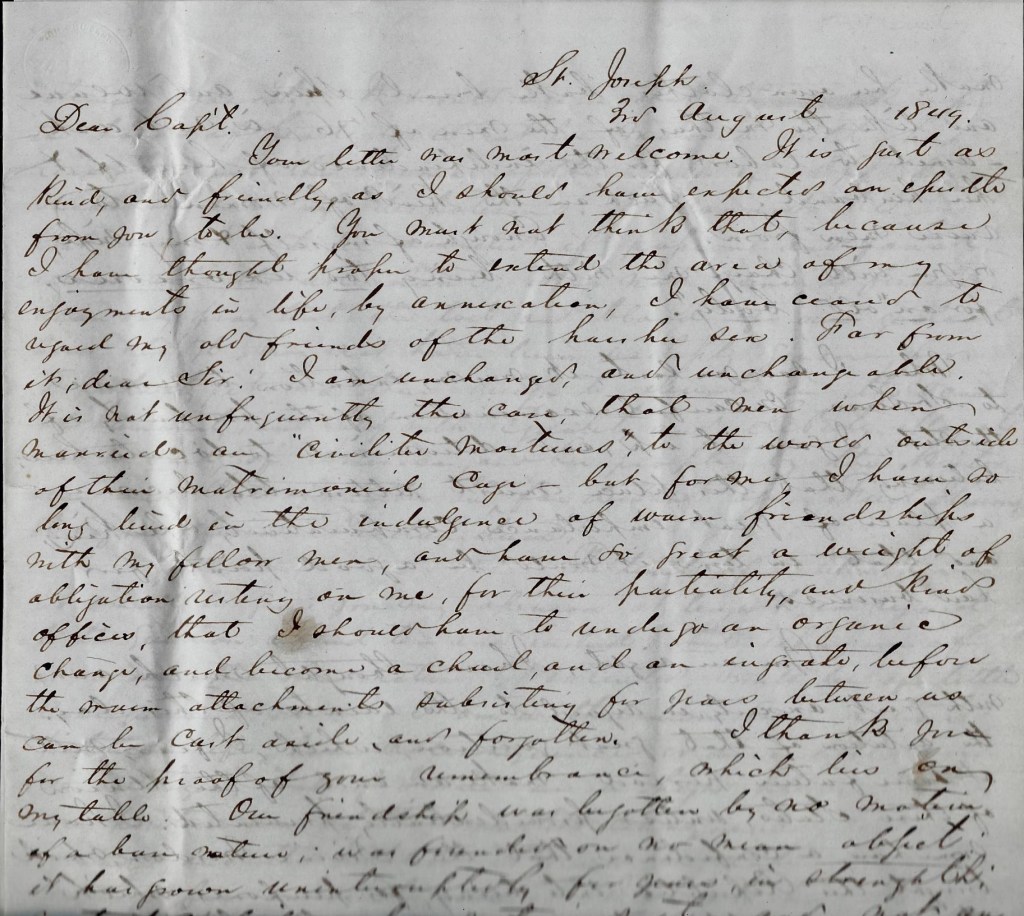 St. Joseph.
3rd August 1849.
Dear Capt.
Your letter was most welcome. It is just as
kind, and friendly, as I should have expected an epistle
from you, to be. You must not think that, because
I have thought proper to extend the area of my
enjoyments in life, by annexation, I have ceased to
regard my old friends of the harsher sex. Far from
it, dear Sir! I am unchanged, and unchangeable.
It is not unfrequently the case, that men when
married are "civiliter mortuus", to the world outside
of their matrimonial cage – but for me, I have so
long lived in the indulgence of warm friendships
with my fellow men, and have so great a weight of
obligation resting on me, for their partiality, and kind
offices, that I should have to undergo an organic
change, and become a churl, and an ingrate, before
the warm attachments subsisting for years between us
can be cast aside and forgotten. I thank you
for the proof of your remembrance, which lies on
my table. Our friendship was begotten by no motive
of a base nature; was founded on no mean object;
it has grown uninterruptedly for years in strength;